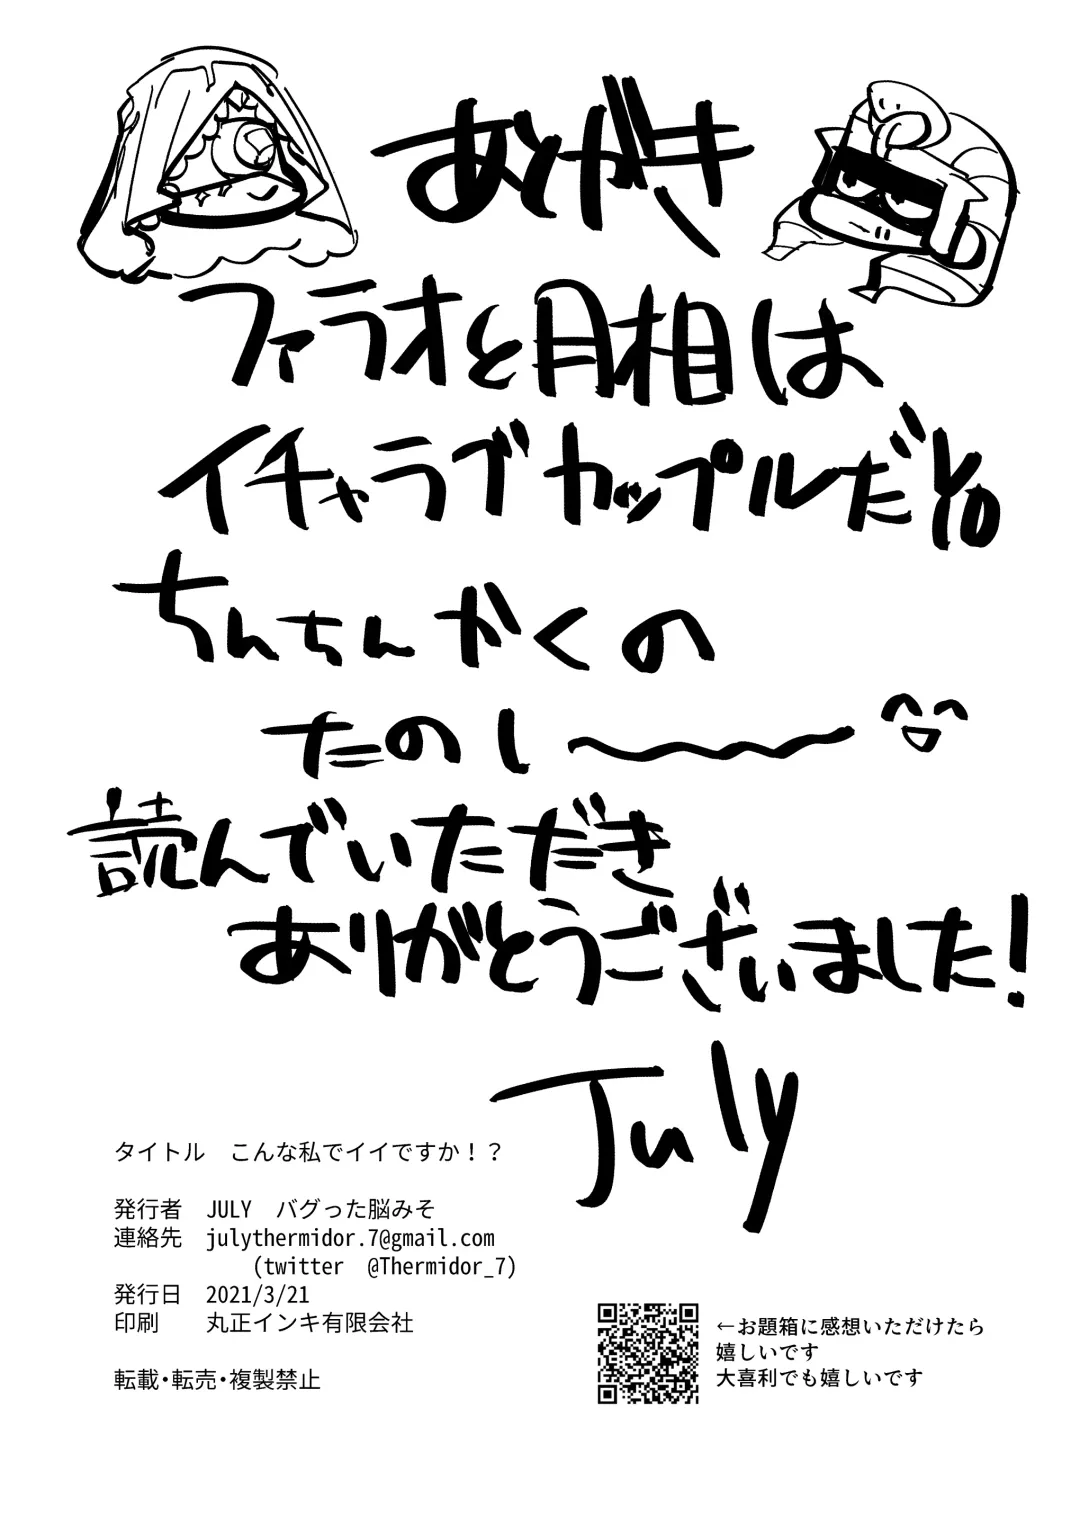 あとがき
ファラオと月相は
イチャラブカップルだYO
ちんちんかくの
たのし〜
読んでいただき
ありがとうございました!
July
タイトル　こんな私でイイですか！？
発行者　JULY　バグった脳みそ
連絡先　julythermidor.7@gmail.com
(twitter　@Thermidor_7)
発行日　2021/3/21
印刷　　丸正インキ有限会社
転載・転売・複製禁止
←お題箱に感想いただけたら
嬉しいです
大喜利でも嬉しいです